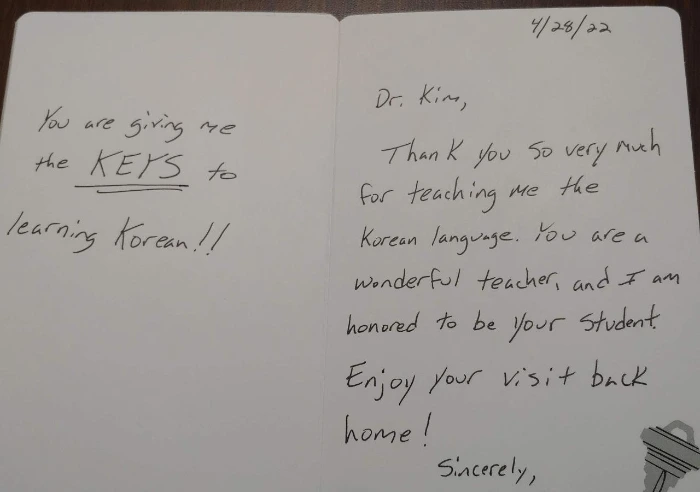 You are giving me
the KEYS to
learning Korean!!
4/28/22
Dr. Kim,
Thank you so very much
for teaching me the
Korean language. You are a
wonderful teacher, and I am
honored to be your student.
Enjoy your visit back
home!
Sincerely,